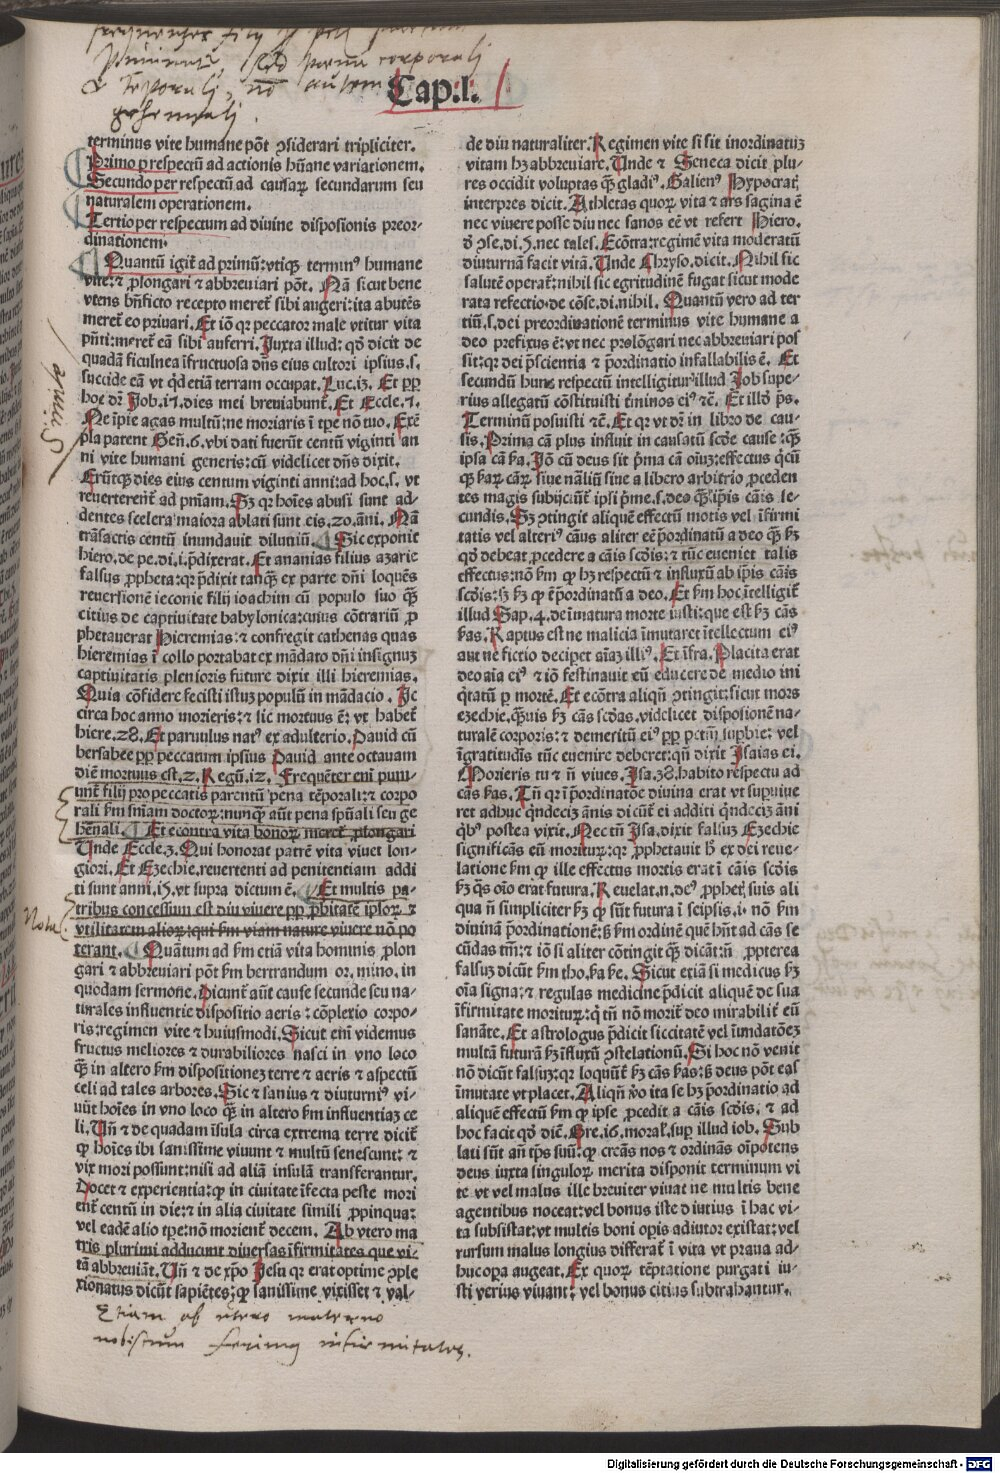 frequenter filij
puniuntur, sed poena corporali
& temporali, non autem
gehennali.
Cap.l.
terminus vite humane põt ꝯsiderari tripliciter.
Primo ꝑ respectũ ad actionis hũane variationem.
Secundo per respectũ ad causaꝝ secundarum seu
naturalem operationem.
Tertio per respectum ad diuine disposionis preor-
dinationem.
Quantũ igit̃ ad primũ: vtiqꝫ terminꝰ humane
vite: ⁊ ꝓlongari ⁊ abbreuiari põt. Nã sicut bene
vtens bñficto recepto meret̃ sibi augeri: ita abutẽs
meret̃ eo priuari. Et iõ qꝛ peccator male vtitur vita
pñti: meret̃ eã sibi auferri. Juxta illud: qđ dicit de
quadã ficulnea ifructuosa dñs eius cultori ipsius. s.
succide eã vt qđ etiã terram occupat. Luc. i3. Et ꝓꝑ
hoc dꝛ Job. i7. dies mei breuiabunt̃. Et Eccle. 7.
Ne ĩpie agas multũ: ne moriaris ĩ tꝑe nõ tuo. Exẽ
pla patent Geñ. 6. vbi dati fuerũt centũ viginti an
ni vite humani generis: cũ videlicet dñs dixit.
Erũtqꝫ dies eius centum viginti anni: ad hoc. s. vt
reuerterent̃ ad pñiam. Sꝫ qꝛ hoĩes abusi sunt ad-
dentes scelera maiora ablati sunt eis. 20. ãni. Nã
trãsactis centũ inundauit diluuiũ. Sic exponit
hiero. de pe. di. i. ꝓdixerat. Et ananias filius azarie
falsus ꝓpheta: qꝛ ꝑdixit tanqꝫ̃ ex parte dñi loquẽs
reuersionẽ ieconie filij ioachim cũ populo suo qꝫ̃
citius de captiuitate babylonica: cuius cõtrariũ ꝓ
phetauerat Hieremias: ⁊ confregit cathenas quas
hieremias ĩ collo portabat ex mãdato dñi insignuꝫ
captiuitatis plenioris future dixit illi hieremias.
Quia cõfidere fecisti istuꝫ populũ in mãdacio. Jc
circa hoc anno morieris: ⁊ sic mortuus ẽ: vt habet̃
hiere. 28. Et paruulus natꝰ ex adulterio. Dauid cũ
bersabee ꝓꝑ peccatum ipsius Dauid ante octauam
diẽ mortuus est. 2. Regũ. i2. Frequẽter eni puni-
unt̃ filij pro peccatis parentũ pena tẽporali: ⁊ corpo
rali ẜm sñiam doctoꝝ: nunqꝫ aũt pena spũali seu ge
hẽnali. Et econtra vita bonoꝝ meret̃ prolongari
Unde Eccle. 3. Qui honorat patrẽ vita viuet lon-
giori. Et Ezechie. reuertenti ad penitentiam addi
ti sunt anni. i5. vt supra dictum ẽ. Et multis pa-
tribus concessum est diu viuere ꝓꝑ ꝓbitatẽ ipsoꝝ ⁊
vtilitatem alioꝝ: qui ẜm viam nature viuere nõ po
terant. Quãtum ad ẜm etiã vita hominis ꝓlon
gari ⁊ abbreuiari põt ẜm bertrandum or. mino. in
quodam sermone. Dicunt̃ aũt cause secunde seu na-
turales influentie dispositio aeris: cõplexio corpo-
ris: regimen vite ⁊ huiusmodi. Sicut em̃ videmus
fructus meliores ⁊ durabiliores nasci in vno loco
qꝫ̃ in altero ẜm dispositionez terre ⁊ aeris ⁊ aspectũ
celi ad tales arbores. Sic ⁊ sanius ⁊ diuturniꝰ vi-
uũt hoĩes in vno loco qꝫ̃ in altero ẜm influentiaꝫ ce
li. Uñ ⁊ de quadam ĩsula circa extrema terre dicit̃
ꝙ hoĩes ibi sanissime viuunt ⁊ multũ senescunt: ⁊
vix mori possunt: nisi ad aliã insulã transferantur.
Docet ⁊ experientia: ꝙ in ciuitate ĩfecta peste mori
ent̃ centũ in die: ⁊ in alia ciuitate simili ꝓpinqua:
vel eadẽ alio tꝑe: nõ morient̃ decem. Ab vtero ma
tris plurimi adducunt diuersas ĩfirmitates que vi-
tã abbreuiãt. Uñ ⁊ de xp̃o Jesu qꝛ erat optime ꝯple
xionatus dicũt sapiẽtes: ꝙ sanissime vixisset ⁊ val-
de diu naturaliter. Regimen vite si sit inordinatuꝫ
vitam hꝫ abbreuiare. Unde ⁊ Seneca dicit plu-
res occidit voluptas qꝫ̃ gladiꝰ. Galienꝰ Hypocrat̃
interpres dicit. Athletas quoꝝ vita ⁊ ars sagina ẽ
nec viuere posse diu nec sanos eẽ vt refert Hiero.
đ ꝯse. di. 5. nec tales. Ecõtra: regimẽ vita moderatũ
diuturnã facit vitã. Unde Chryso. dicit. Nihil sic
salutẽ operat̃: nihil sic egritudinẽ fugat sicut mode
rata refectio. de cõse. di. nihil. Quantũ vero ad ter
tiũ. s. dei preordinationẽ terminus vite humane a
deo prefixus ẽ: vt nec prolõgari nec abbreuiari pos
sit: qꝛ dei ꝓscientia ⁊ ꝓordinatio infallabilis ẽ. Et
secundũ hunc respectũ intelligitur illud Job supe-
rius allegatũ cõstituisti t̃minos eiꝰ ⁊c̃. Et illđ p̃s.
Terminũ posuisti ⁊c̃. Et qꝛ vt dꝛ in libro de cau-
sis. Prima cã plus influit in causatũ scđe cause: qꝫ̃
ipsa cã ẜa. Jõ cũ deus sit p̃ma cã oĩuꝫ: effectus q̇cũ
qꝫ ẜaꝝ cãꝝ siue nãliũ siue a libero arbitrio ꝓceden
tes magis subijciunt̃ ipsi p̃me. s. deo qꝫ̃ ip̃is cãis se-
cundis. Sꝫ ꝯtingit aliquẽ effectũ motis vel ĩfirmi
tatis vel alteriꝰ cãus aliter eẽ ꝑordinatũ a deo qꝫ̃ ẜꝫ
qđ debeat ꝓcedere a cãis scđis: ⁊ tũc eueniet talis
effectus: nõ ẜm ꝙ hꝫ respectũ ⁊ influxũ ab ip̃is cãis
scđis: sꝫ ẜꝫ ꝙ ẽ ꝑordinatũ a deo. Et ẜm hoc ĩtelligit̃
illud Sap. 4. de ĩmatura morte iusti: que est ẜꝫ cãs
ẜas. Raptus est ne malicia ĩmutaret ĩtellectum eiꝰ
aut ne fictio deciperet aĩaꝫ illiꝰ. Et ĩfra. Placita erat
deo aĩa eiꝰ ⁊ iõ festinauit eũ educere de medio ini
q̇tatũ ꝑ mortẽ. Et ecõtra aliqñ ꝯtingit: sicut mors
ezechie. qꝫ̃uis ẜꝫ cãs scđas. videlicet disposionẽ na-
turalẽ corporis: ⁊ demeritũ eiꝰ ꝓꝑ pctm̃ supbie: vel
ĩgratitudis̃ tũc euenire deberet: qñ dixit Jsaias ei.
Morieris tu ⁊ ñ viues. Jsa. 38. habito respectu ad
cãs ẜas. Tñ qꝛ ĩ ꝑordinatõe diuina erat vt supuiue
ret adhuc q̇ndeciꝫ ãnis dicũt̃ ei additi q̇ndeciꝫ ãni
q̇bꝰ postea vixit. Nec tñ Jsa. dixit falsuꝫ Ezechie
significãs eũ morituꝝ: qꝛ ꝓphetauit h̃ ex dei reue-
latione ẜm ꝙ ille effectus mortis erat ĩ cãis scđis
ẜꝫ q̃s oĩo erat futura. Reuelat. n. deꝰ ꝓphet̃ suis ali
qua ñ simpliciter ẜꝫ ꝙ sũt futura ĩ seipsis. i. nõ ẜm
diuinã ꝑordinationẽ: sꝫ ẜm ordinẽ quẽ hñt ad cãs se
cũdas tm̃: ⁊ iõ si aliter cõtingit qꝫ̃ dicãt: ñ ꝓpterea
falsuꝫ dicũt ẜm tho. ẜa ẜe. Sicut etiã si medicus ẜꝫ
oĩa signa: ⁊ regulas medicine ꝑdicit aliquẽ de sua
ĩfirmitate morituꝝ: q̇ tñ nõ morit̃ deo mirabilit̃ eũ
sanãte. Et astrologus ꝑdicit siccitatẽ vel ĩundatõeꝫ
multã futurã ẜꝫ ĩfluxũ ꝯstelationũ. Si hoc nõ venit
nõ dicũt falsuꝫ: qꝛ loquũt̃ ẜꝫ cãs ẜas: sꝫ deus põt eas
ĩmutate vt placet. Aliqñ v̊o ita se hꝫ ꝑordinatio ad
aliquẽ effectũ ẜm ꝙ ipse ꝓcedit a cãis scđis. ⁊ ad
hoc facit qđ diẽ. Gre. i6. moral̃. sup illud iob. Sub
lati sũt añ tp̃s suũ: ꝙ creãs nos ⁊ ordinãs oĩpotens
deus iuxta singuloꝝ merita disponit terminum vi
te vt vel malus ille breuiter viuat ne multis bene
agentibus noceat: vel bonus iste diutius ĩ hac vi-
ta subsistat: vt multis boni opis adiutor existat: vel
rursum malus longius differat̃ ĩ vita vt praua ad-
huc opa augeat. Ex quoꝝ tẽptatione purgati iu-
sti verius viuant: vel bonus citius subtrahantur.
Nota
Etiam ab utero materno
nobiscum ferimus infirmitates.
Digitalisierung gefördert durch die Deutsche Forschungsgemeinschaft - DFG